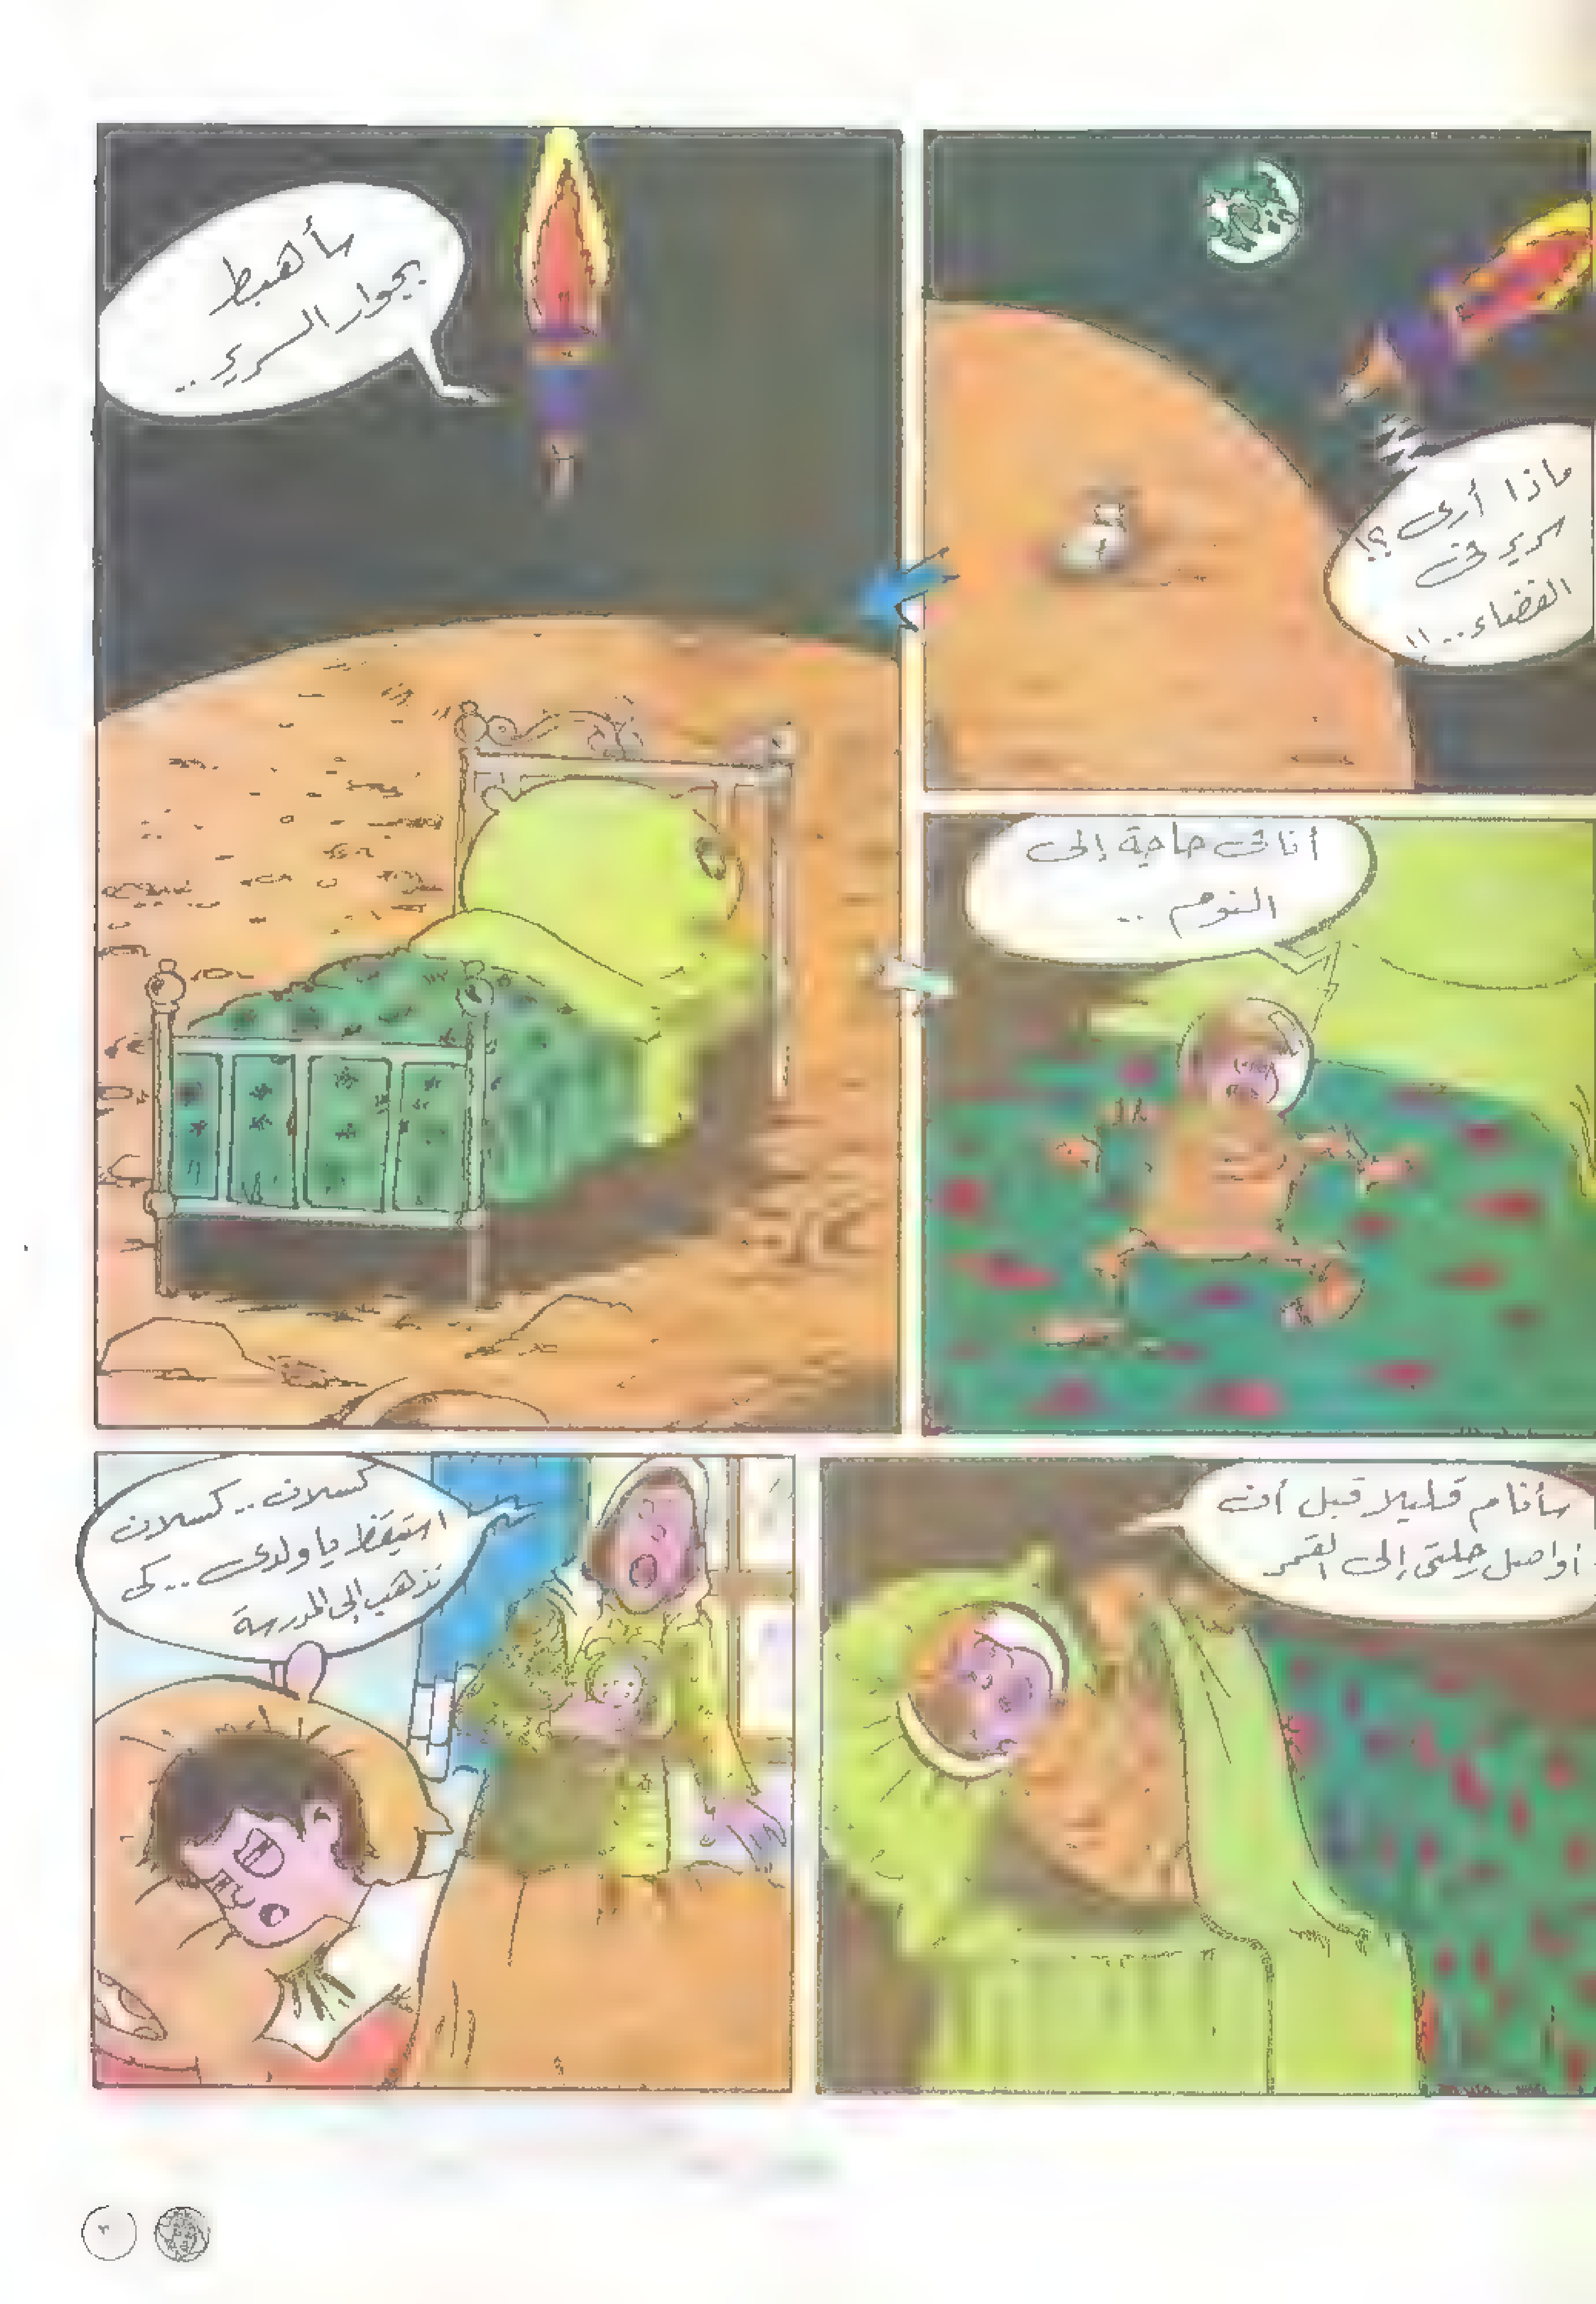 ماذا أرى ؟!
سرير فى
الفضاء..!!
سأهبط
بجوار السرير..
أنا فى حاجة إلى
النوم ..
سأنام قليلا قبل أن
أواصل رحلتى إلى القمر
كسلان.. كسلان
استيقظ يا ولدى.. كى
تذهب إلى المدرسة
٣